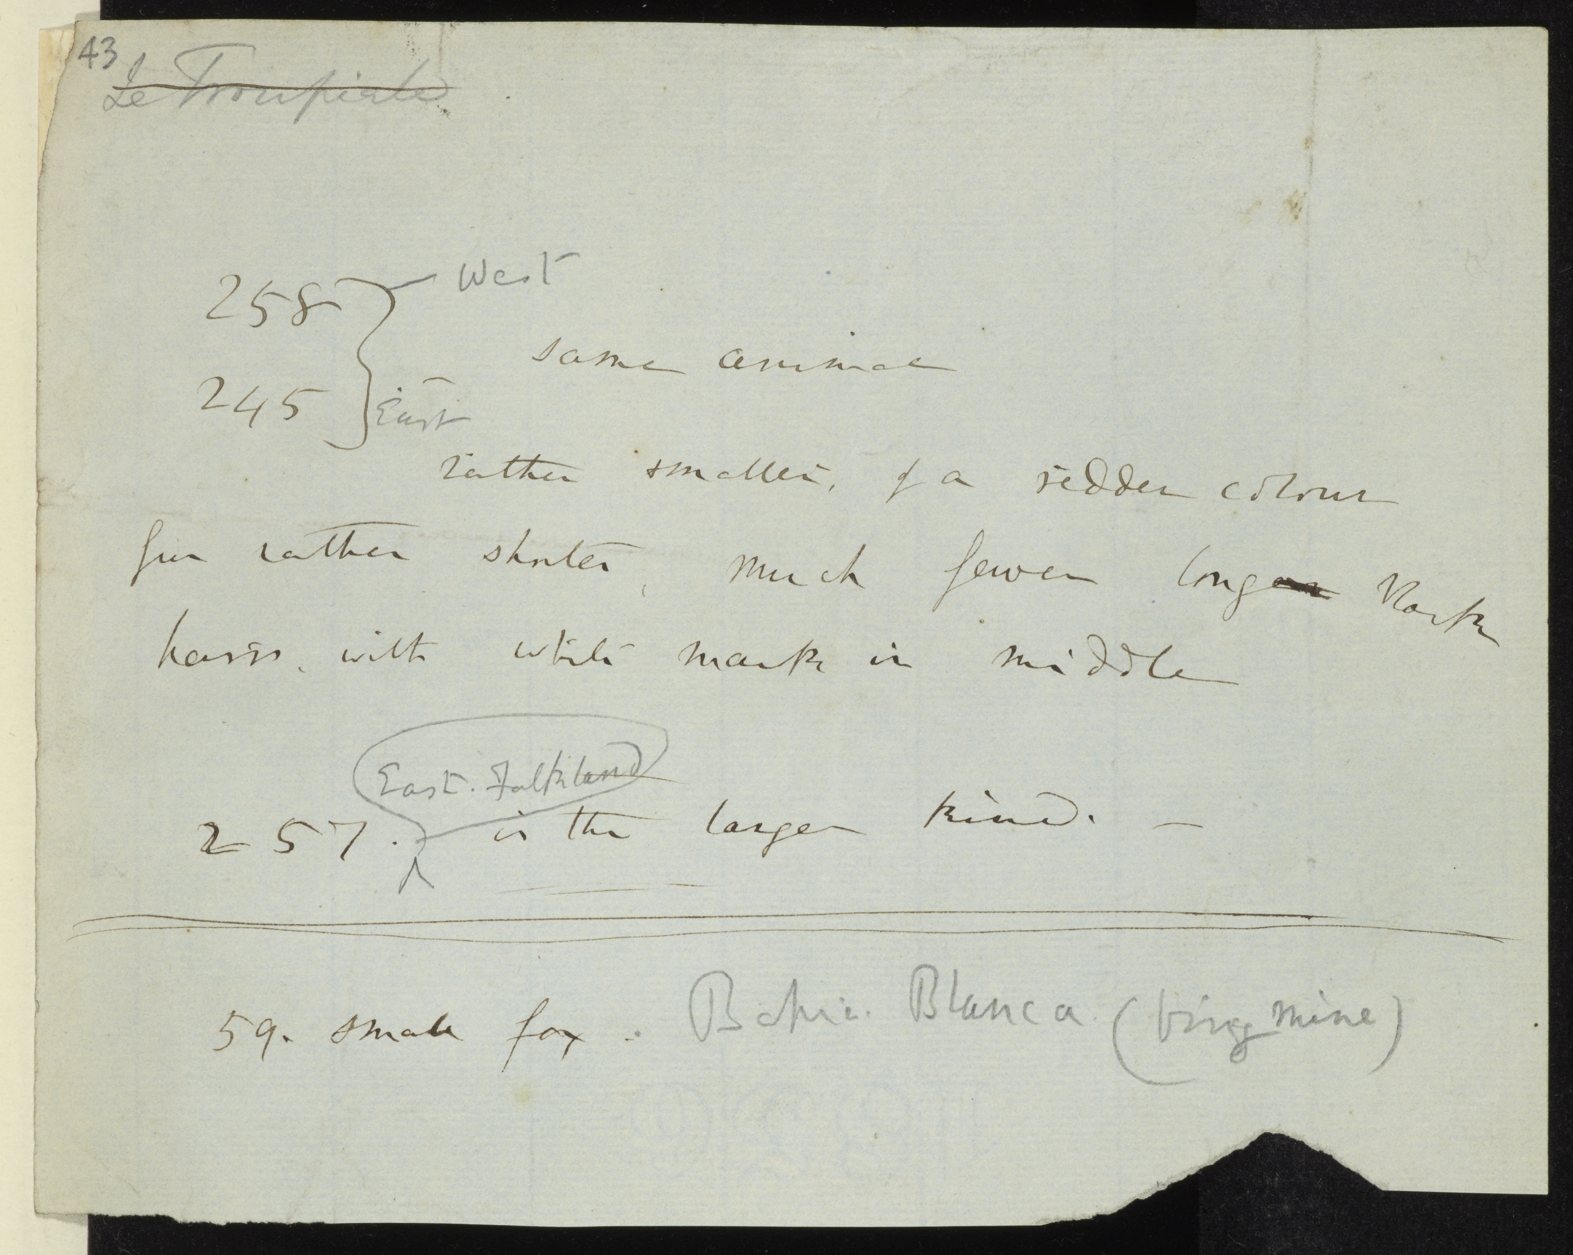 43
Le Troupiale
258 West
same animal
245 East
rather smaller, of a redder colour
fur rather shorter, much fewer long black
hairs, with white mark in middle
East. Falkland
257. is the larger kind. —
59. small fox. Bahia. Blanca. (bring mine)